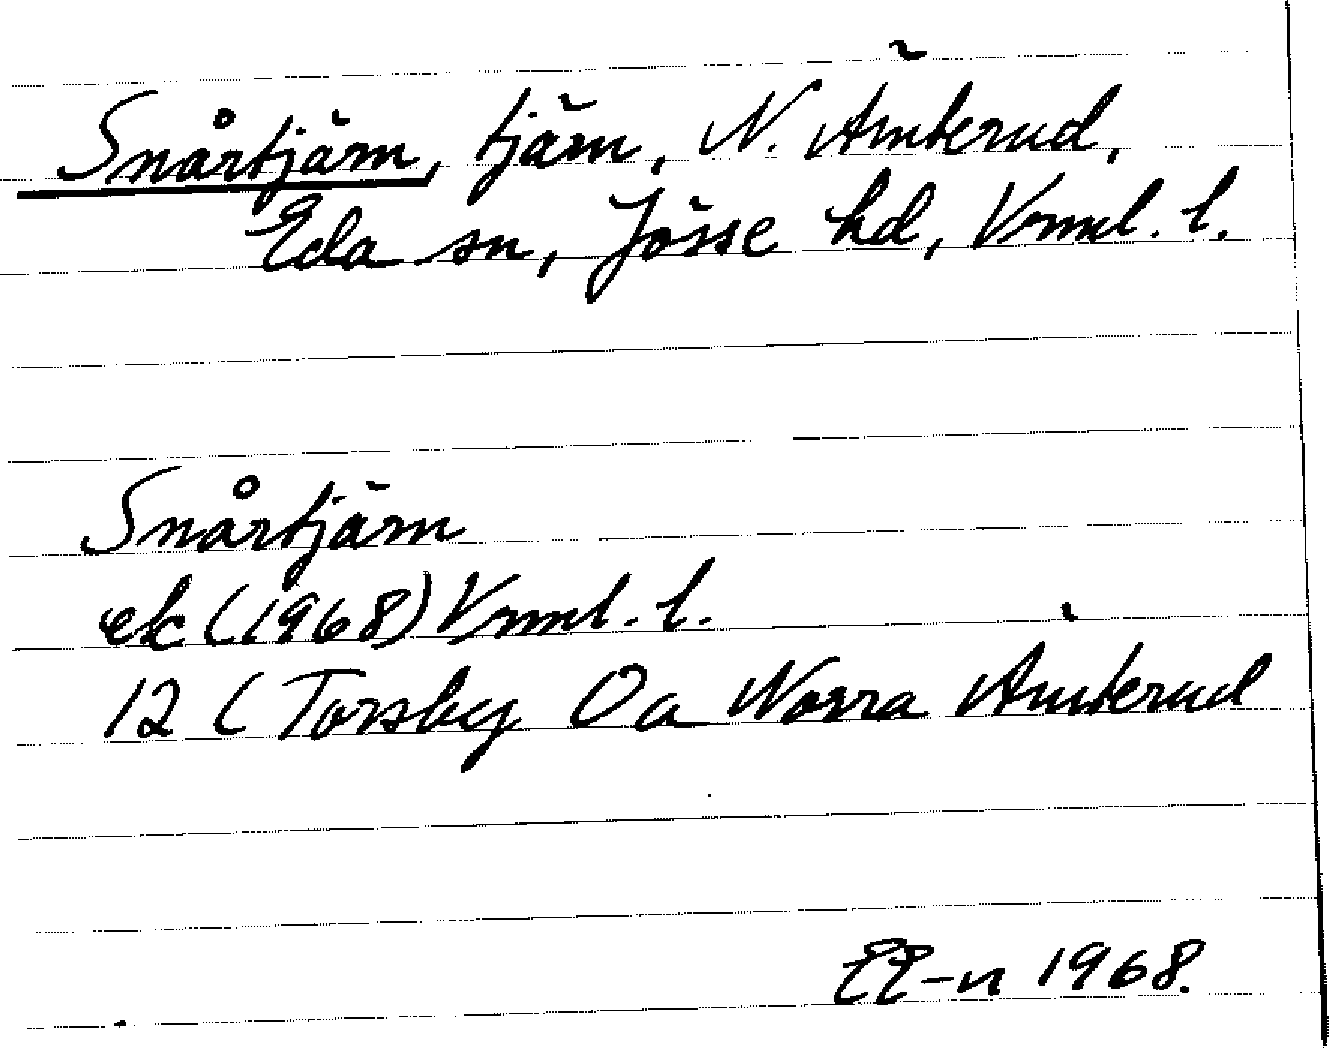 Snårtjärn, tjärn, N. Ämterud,
Eda sn, Jösse hd, Vrml. l.
Snårtjärn
ek (1968) Vrml. l.
12 ( Torsby Oa Norra Ämterud
EE-n 1968.